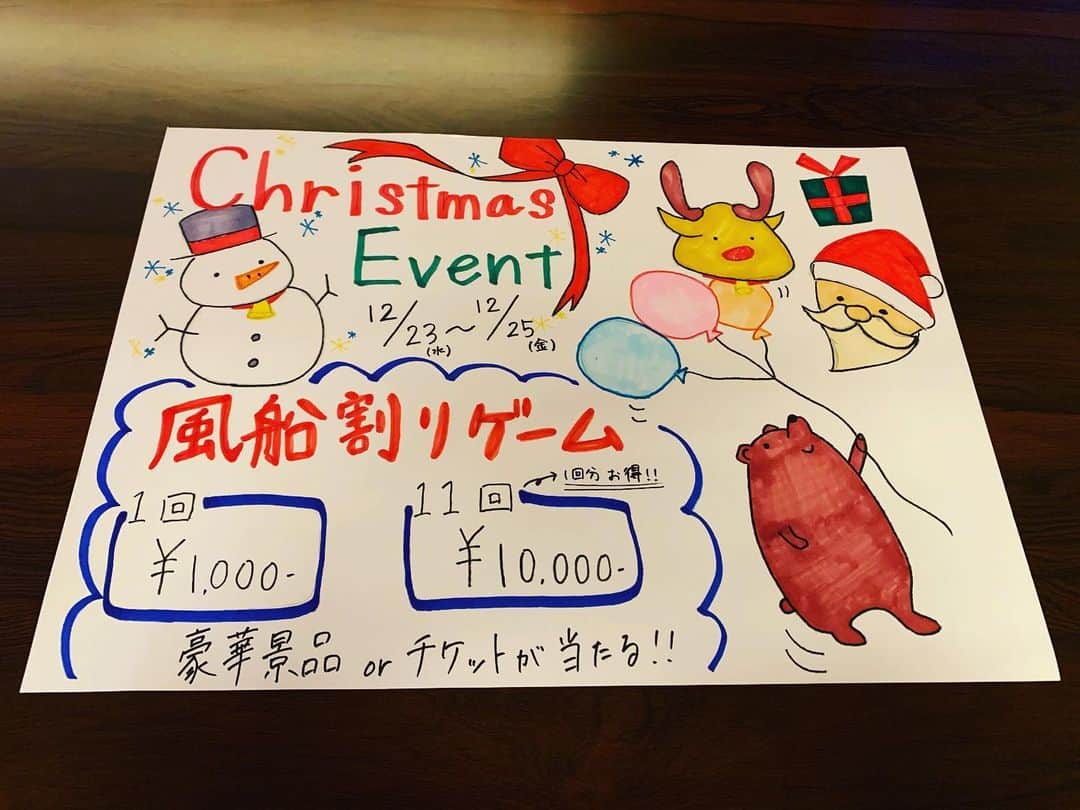 Christmas
Event
12/23(水)～12/25(金)
風船割りゲーム
1回
¥1,000-
11回 → 1回分お得!!
¥10,000-
豪華景品 or チケットが当たる!!